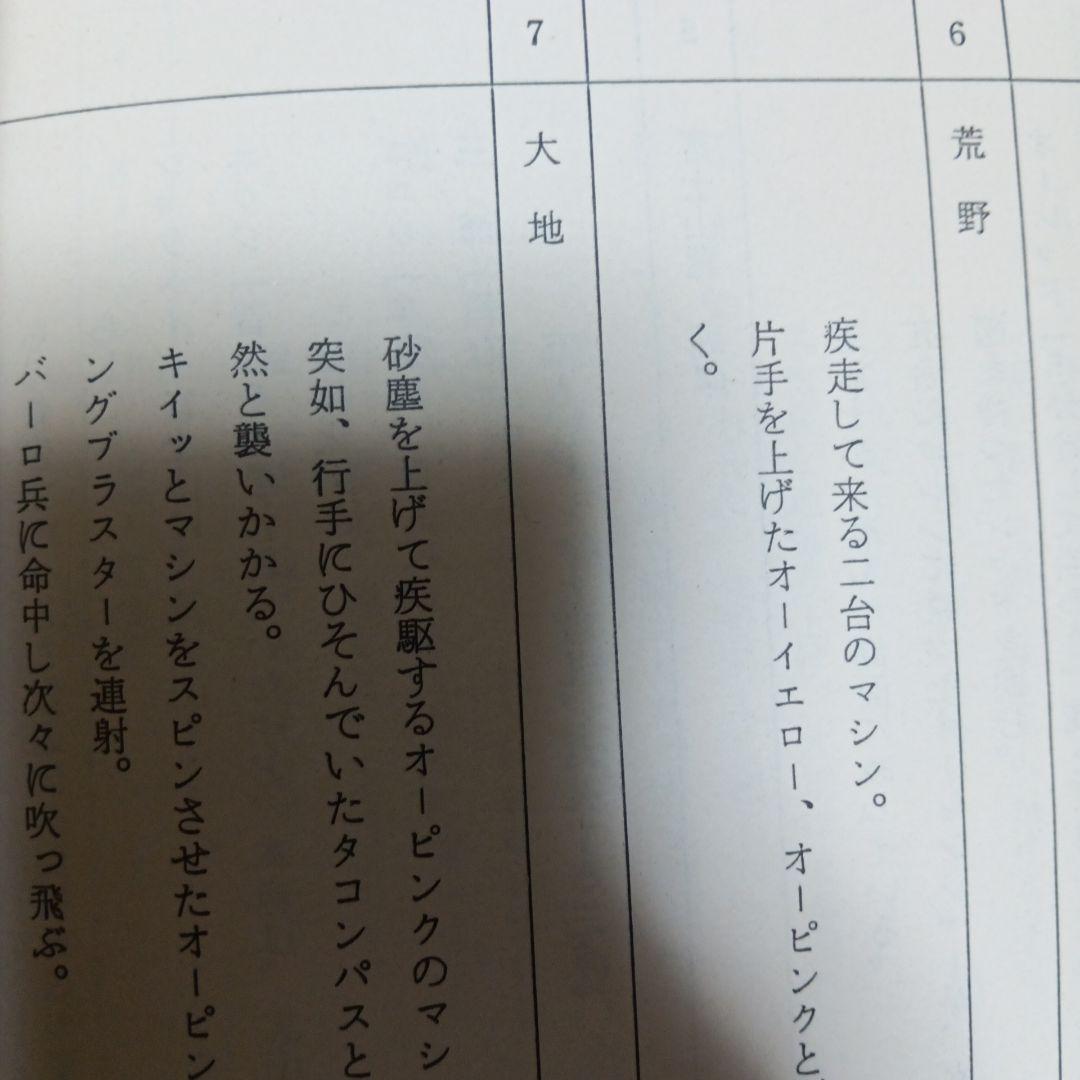 6
荒野
疾走して来る二台のマシン。
片手を上げたオーイエロー、オーピンクと
く。
7
大地
砂塵を上げて疾駆するオーピンクのマシ
突如、行手にひそんでいたタコンパスと
然と襲いかかる。
キイッとマシンをスピンさせたオーピン
ングブラスターを連射。
バーロ兵に命中し次々に吹っ飛ぶ。